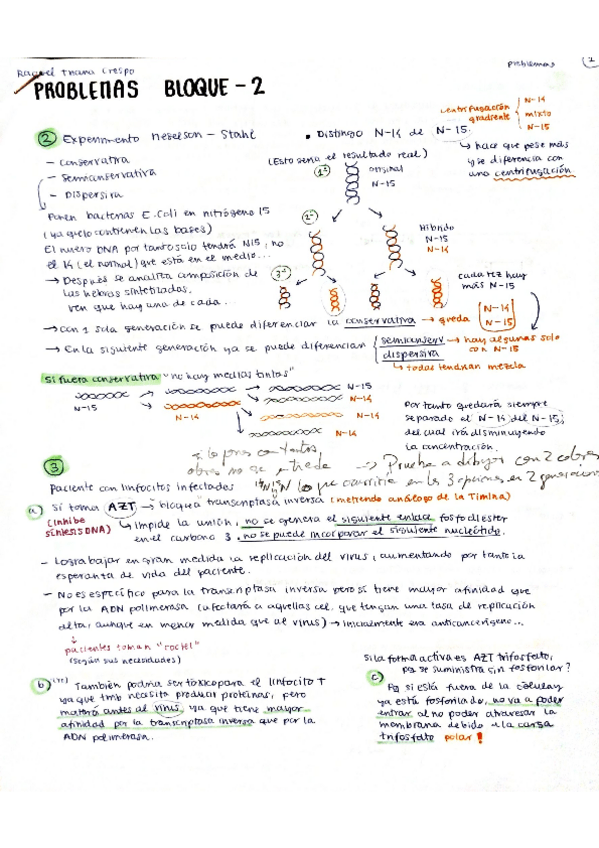 Problemas
PROBLEMAS BLOQUE - 2
② Experimento Meselson - Stahl
- Conservativa
- Semiconservativa
- Dispersiva
Ponen bacterias E. Coli en nitrógeno 15
(ya que lo contienen las bases)
El nuevo DNA por tanto solo tendrá N15, no
el 14 (el normal) que está en el medio...
→ Después se analiza composición de
las hebras sintetizadas.
ven que hay una de cada...
• Distingo N-14 de N-15
centrifugación
gradiente
N-14
mixto
N-15
↳ hace que pese más
y se diferencia con
una centrifugación
(Esto sería el resultado real)
1ª
original
N-15
2ª
Híbrido
N-15
N-14
3ª
cada vez hay
más N-15
→ con 1 sola generación se puede diferenciar la conservativa → queda
N-14
N-15
→ En la siguiente generación ya se puede diferenciar
semiconserv → hay algunas solo
con N-15
dispersiva
↳ todas tendrían mezcla
Si fuera conservativa "no hay medias tintas"
N-15
N-15
N-14
N-14
N-14
N-14
Por tanto quedará siempre
separado el N-14 del N-15,
del cual irá disminuyendo
la concentración.
→ Prueba a dibujar con 2 colores
lo que ocurriría en las 3 opciones en 2 generaciones
③
Paciente con linfocitos infectados
a) Si toma AZT → bloquea transcriptasa inversa (metiendo análogo de la Timina)
(inhibe
síntesis DNA)
↳ Impide la unión, no se genera el siguiente enlace fosfodiéster
en el carbono 3, no se puede incorporar el siguiente nucleótido.
- Logra bajar en gran medida la replicación del virus, aumentando por tanto la
esperanza de vida del paciente.
- No es específico para la transcriptasa inversa pero sí tiene mayor afinidad que
por la ADN polimerasa (afectará a aquellas cel. que tengan una tasa de replicación
alta, aunque en menor medida que al virus) → Inicialmente era anticancerígeno...
pacientes toman "coctel"
(según sus necesidades)
b) También podría ser tóxico para el linfocito T
ya que tmb necesita producir proteínas, pero
matará antes al virus, ya que tiene mayor
afinidad por la transcriptasa inversa que por la
ADN polimerasa.
Si la forma activa es AZT trifosfato,
pq se suministra sin fosforilar?
c) Pq si está fuera de la célula y
ya está fosforilado, no va a poder
entrar al no poder atravesar la
membrana debido a la carga
trifosfato polar!